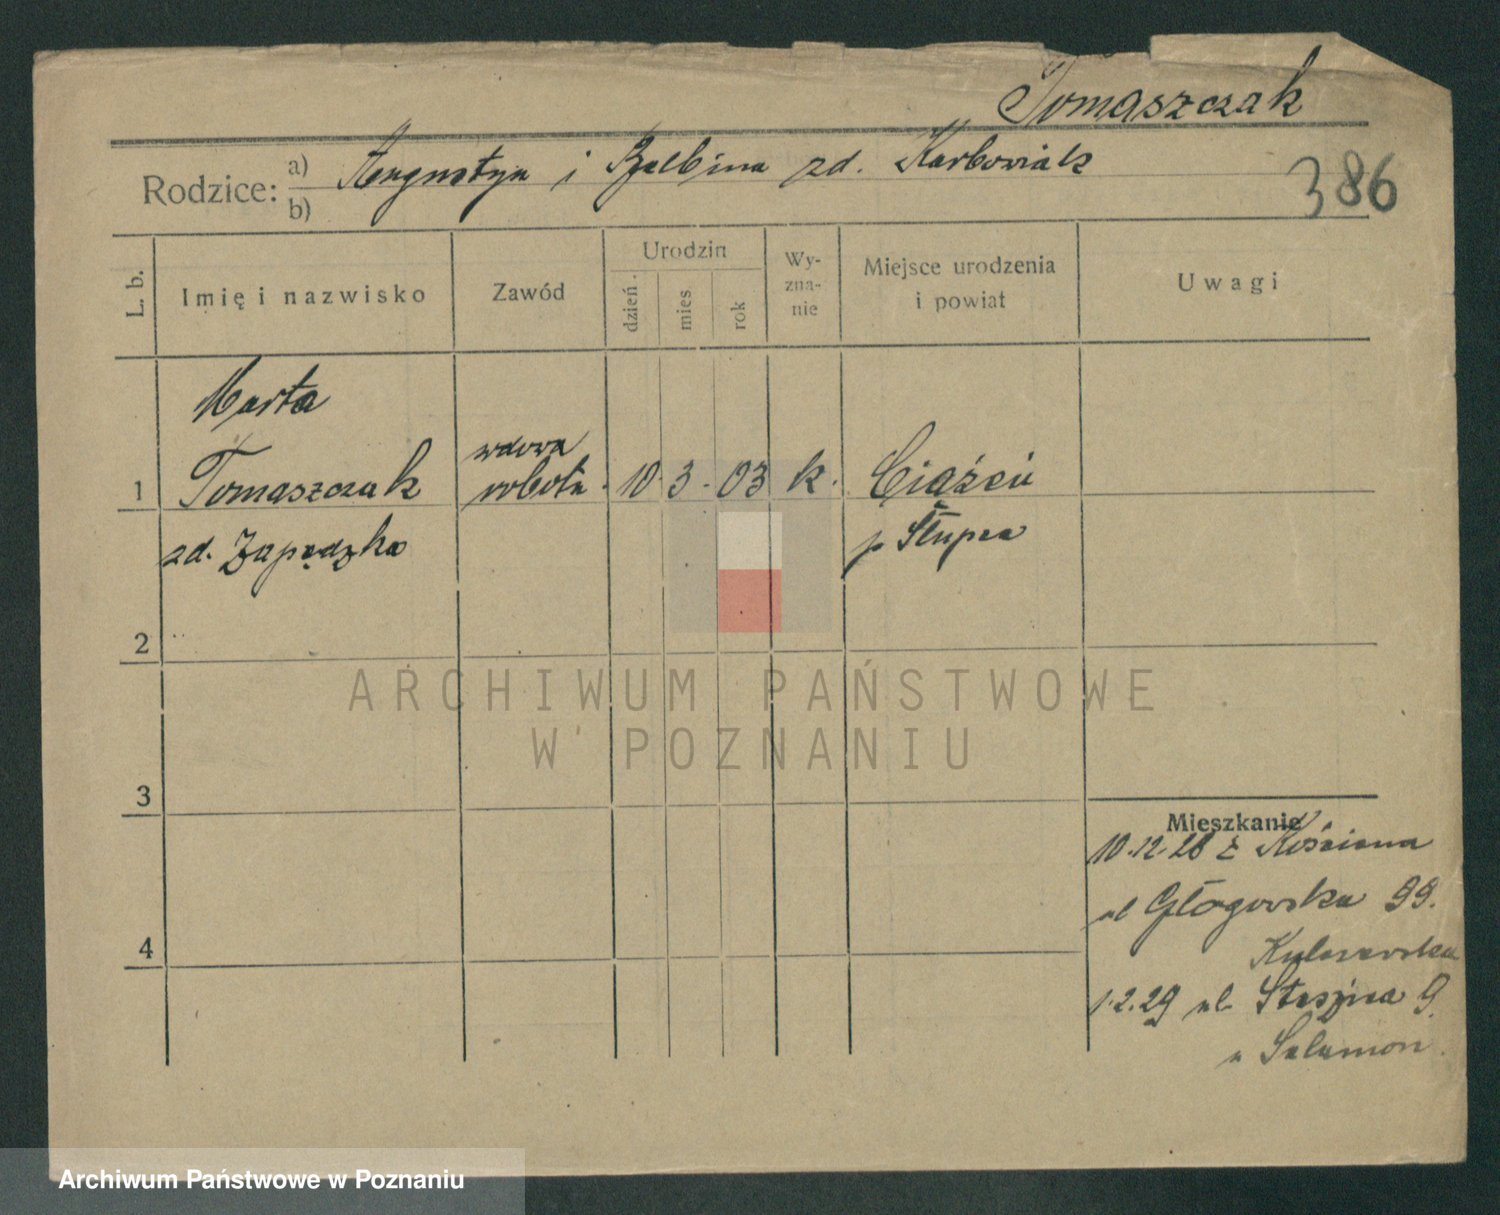 Tomaszczak
Rodzice: a) Augustyn i Balbina zd. Karbowiak
b)
386
L. b. Imię i nazwisko Zawód Urodzin dzień. mies rok Wy-zna-nie Miejsce urodzenia i powiat Uwagi
Marta
1 Tomaszczak wdowa robotn. 10. 3. 03 k. Ciążeń
zd. Zapędzka p Słupca
2
ARCHIWUM PAŃSTWOWE
W POZNANIU
3
Mieszkanie
10.12.28 z Kościana
ul Głogowska 99.
4
1.2.29 ul. Staszica 9.
u Salamon
Archiwum Państwowe w Poznaniu